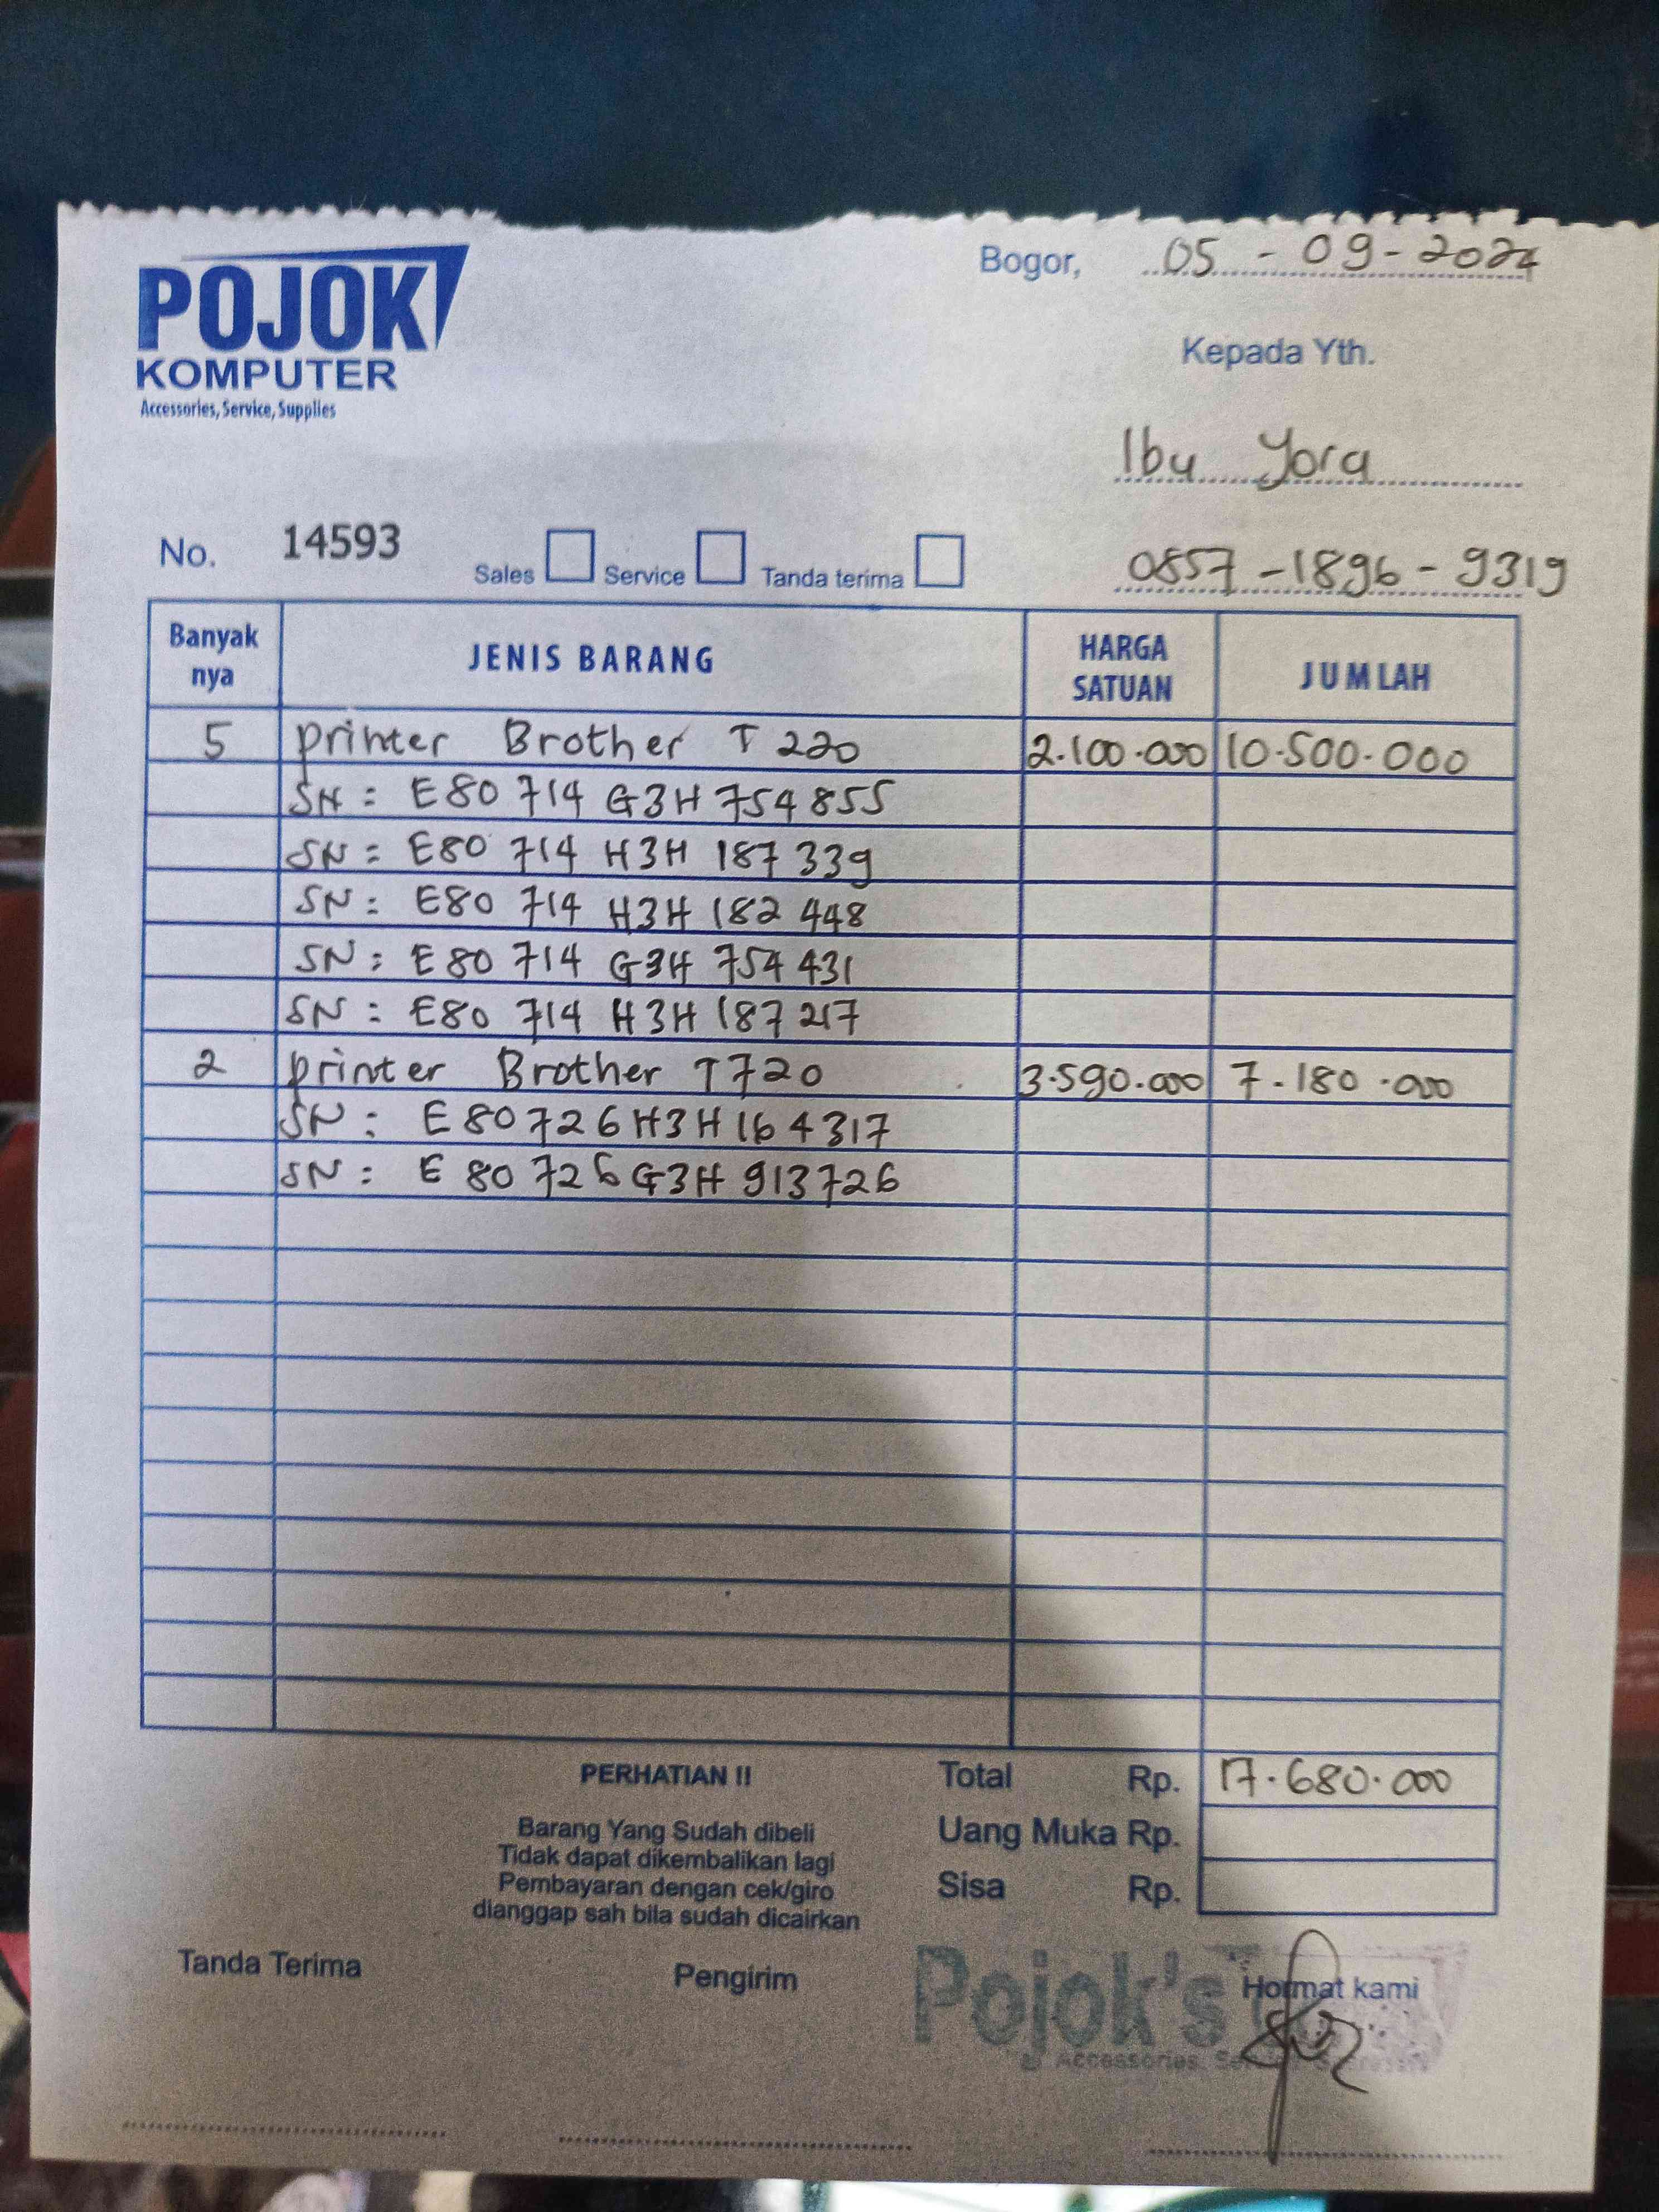 POJOK
KOMPUTER
Accessories, Service, Supplies
Bogor, 05 - 09 - 2024
Kepada Yth.
Ibu Yora
0857 - 1896 - 9319
No. 14593 Sales Service Tanda terima
Banyak nya JENIS BARANG HARGA SATUAN JUMLAH
5 printer Brother T 220 2.100.000 10.500.000
SN : E80 714 G3H 754855
SN : E80 714 H3H 187 339
SN : E80 714 H3H 182 448
SN : E80 714 G3H 754 431
SN : E80 714 H3H 187 217
2 printer Brother T720 3.590.000 7.180.000
SN : E80726H3H164317
SN : E 80 726G3H 913726
PERHATIAN !!
Barang Yang Sudah dibeli
Tidak dapat dikembalikan lagi
Pembayaran dengan cek/giro
dianggap sah bila sudah dicairkan
Total Rp. 17.680.000
Uang Muka Rp.
Sisa Rp.
Tanda Terima Pengirim Hormat kami
Pojok's
Accessories,